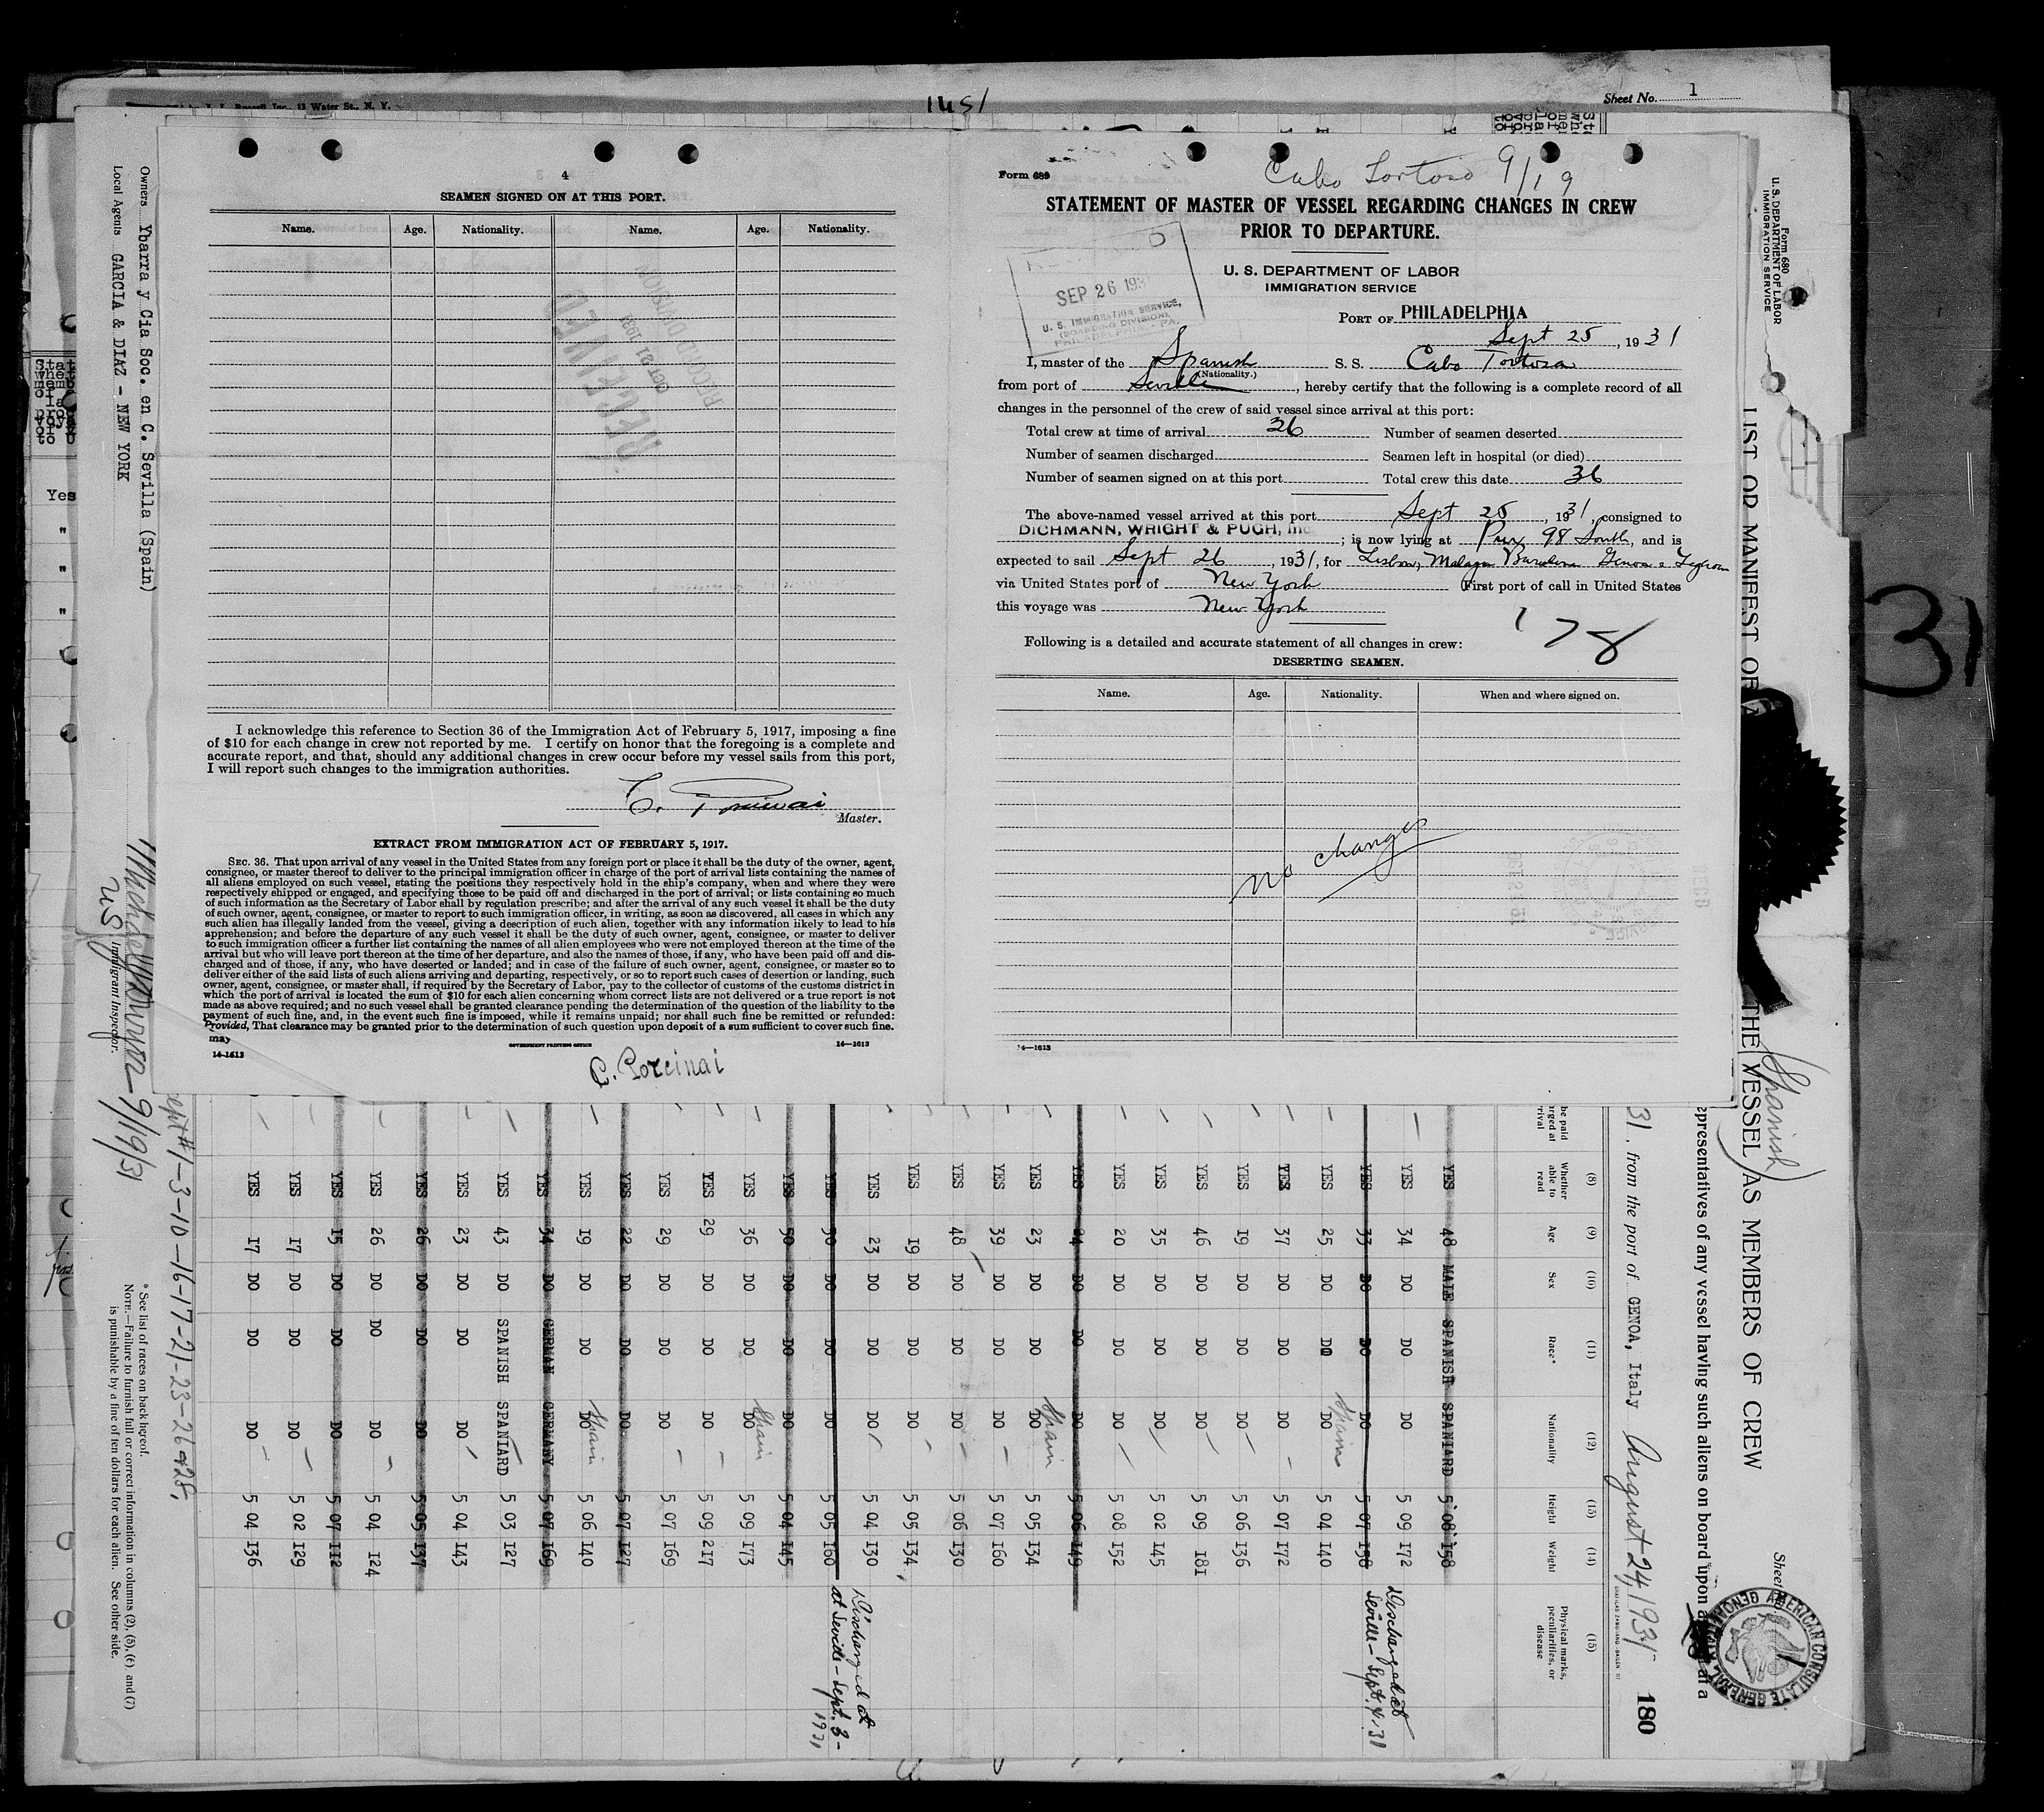 1451
Sheet No. 1
4
SEAMEN SIGNED ON AT THIS PORT.
Name. Age. Nationality. Name. Age. Nationality.
RECEIVED
OCT 21 1931
RECORD DIVISION
I acknowledge this reference to Section 36 of the Immigration Act of February 5, 1917, imposing a fine
of $10 for each change in crew not reported by me. I certify on honor that the foregoing is a complete and
accurate report, and that, should any additional changes in crew occur before my vessel sails from this port,
I will report such changes to the immigration authorities.
Master.
EXTRACT FROM IMMIGRATION ACT OF FEBRUARY 5, 1917.
SEC. 36. That upon arrival of any vessel in the United States from any foreign port or place it shall be the duty of the owner, agent,
consignee, or master thereof to deliver to the principal immigration officer in charge of the port of arrival lists containing the names of
all aliens employed on such vessel, stating the positions they respectively hold in the ship's company, when and where they were
respectively shipped or engaged, and specifying those to be paid off and discharged in the port of arrival; or lists containing so much
of such information as the Secretary of Labor shall by regulation prescribe; and after the arrival of any such vessel it shall be the duty
of such owner, agent, consignee, or master to report to such immigration officer, in writing, as soon as discovered, all cases in which any
such alien has illegally landed from the vessel, giving a description of such alien, together with any information likely to lead to his
apprehension; and before the departure of any such vessel it shall be the duty of such owner, agent, consignee, or master to deliver
to such immigration officer a further list containing the names of all alien employees who were not employed thereon at the time of the
arrival but who will leave port thereon at the time of her departure, and also the names of those, if any, who have been paid off and dis-
charged and of those, if any, who have deserted or landed; and in case of the failure of such owner, agent, consignee, or master so to
deliver either of the said lists of such aliens arriving and departing, respectively, or so to report such cases of desertion or landing, such
owner, agent, consignee, or master shall, if required by the Secretary of Labor, pay to the collector of customs of the customs district in
which the port of arrival is located the sum of $10 for each alien concerning whom correct lists are not delivered or a true report is not
made as above required; and no such vessel shall be granted clearance pending the determination of the question of the liability to the
payment of such fine, and, in the event such fine is imposed, while it remains unpaid; nor shall such fine be remitted or refunded:
Provided, That clearance may be granted prior to the determination of such question upon deposit of a sum sufficient to cover such fine.
may
14-1613 GOVERNMENT PRINTING OFFICE 14—1613
C. Porcinai
Form 689
Cabo Tortoso 9/19
STATEMENT OF MASTER OF VESSEL REGARDING CHANGES IN CREW
PRIOR TO DEPARTURE.
U. S. DEPARTMENT OF LABOR
IMMIGRATION SERVICE
SEP 26 193
U. S. IMMIGRATION SERVICE,
(BOARDING DIVISION),
PHILADELPHIA - PA.
PORT OF PHILADELPHIA
Sept 25, 1931
I, master of the Spanish S. S. Cabo Tortosa
(Nationality.)
from port of Seville, hereby certify that the following is a complete record of all
changes in the personnel of the crew of said vessel since arrival at this port:
Total crew at time of arrival 36 Number of seamen deserted
Number of seamen discharged Seamen left in hospital (or died)
Number of seamen signed on at this port Total crew this date 36
The above-named vessel arrived at this port Sept 25, 1931, consigned to
DICHMANN, WRIGHT & PUGH, Inc; is now lying at Pier 98 South, and is
expected to sail Sept 26, 1931, for Lisbon, Malaga Barcelona Genoa & Leghorn
via United States port of New York First port of call in United States
this voyage was New York
178
Following is a detailed and accurate statement of all changes in crew:
DESERTING SEAMEN.
Name. Age. Nationality. When and where signed on.
No changes
14—1613
Form 680
U. S. DEPARTMENT OF LABOR
IMMIGRATION SERVICE
LIST OR MANIFEST OF THE VESSEL AS MEMBERS OF CREW
(Spanish)
Sheet
representatives of any vessel having such aliens on board upon a
AMERICAN CONSULATE GENERAL GENOA
31, from the port of GENOA, Italy August 24, 1931
180
be paid
arged at
rrival
(8) Whether able to read
(9) Age
(10) Sex
(11) Race*
(12) Nationality
(13) Height
(14) Weight
(15) Physical marks, peculiarities, or disease
YES 48 MALE SPANISH SPANIARD 5 08 158
YES 34 DO DO DO 5 09 172
YES 33 DO DO DO 5 07 158 Discharged at Seville - Sept. 4, 31
YES 25 DO DO DO Spain 5 04 140
YES 37 DO DO DO 5 07 172
YES 19 DO DO DO 5 06 136
YES 46 DO DO DO 5 09 181
YES 35 DO DO DO 5 02 145
YES 20 DO DO DO 5 08 152
YES 24 DO DO DO 5 06 149
YES 23 DO DO DO Spain 5 05 134
YES 39 DO DO DO 5 07 160
YES 48 DO DO DO 5 06 130
YES 19 DO DO DO 5 05 134
YES 23 DO DO DO 5 04 130
YES 30 DO DO DO 5 05 160 Discharged at at Seville - Sept. 3 - 1931
YES 50 DO DO DO 5 04 145
YES 36 DO DO DO Spain 5 09 173
YES 29 DO DO DO 5 09 217
YES 29 DO DO DO 5 07 169
YES 22 DO DO DO 5 07 127
YES 19 DO DO DO Spain 5 06 140
YES 34 DO GERMAN GERMANY 5 07 169
YES 43 DO SPANISH SPANIARD 5 03 127
YES 23 DO DO DO 5 04 143
YES 26 DO DO DO 5 05 137
YES 26 DO DO DO 5 04 124
YES 15 DO DO DO 5 07 112
YES 17 DO DO DO 5 02 129
YES 17 DO DO DO 5 04 136
ept #1-3-10-16-17-21-23-26 & 28.
* See list of races on back hereof.
NOTE.—Failure to furnish full or correct information in columns (2), (5), (6), and (7)
is punishable by a fine of ten dollars for each alien. See other side.
Owners Ybarra y Cia Soc. en C. Sevilla (Spain)
Local Agents GARCIA & DIAZ - NEW YORK
9/19/31
US Immigrant Inspector.
Yes
"
"
"
31